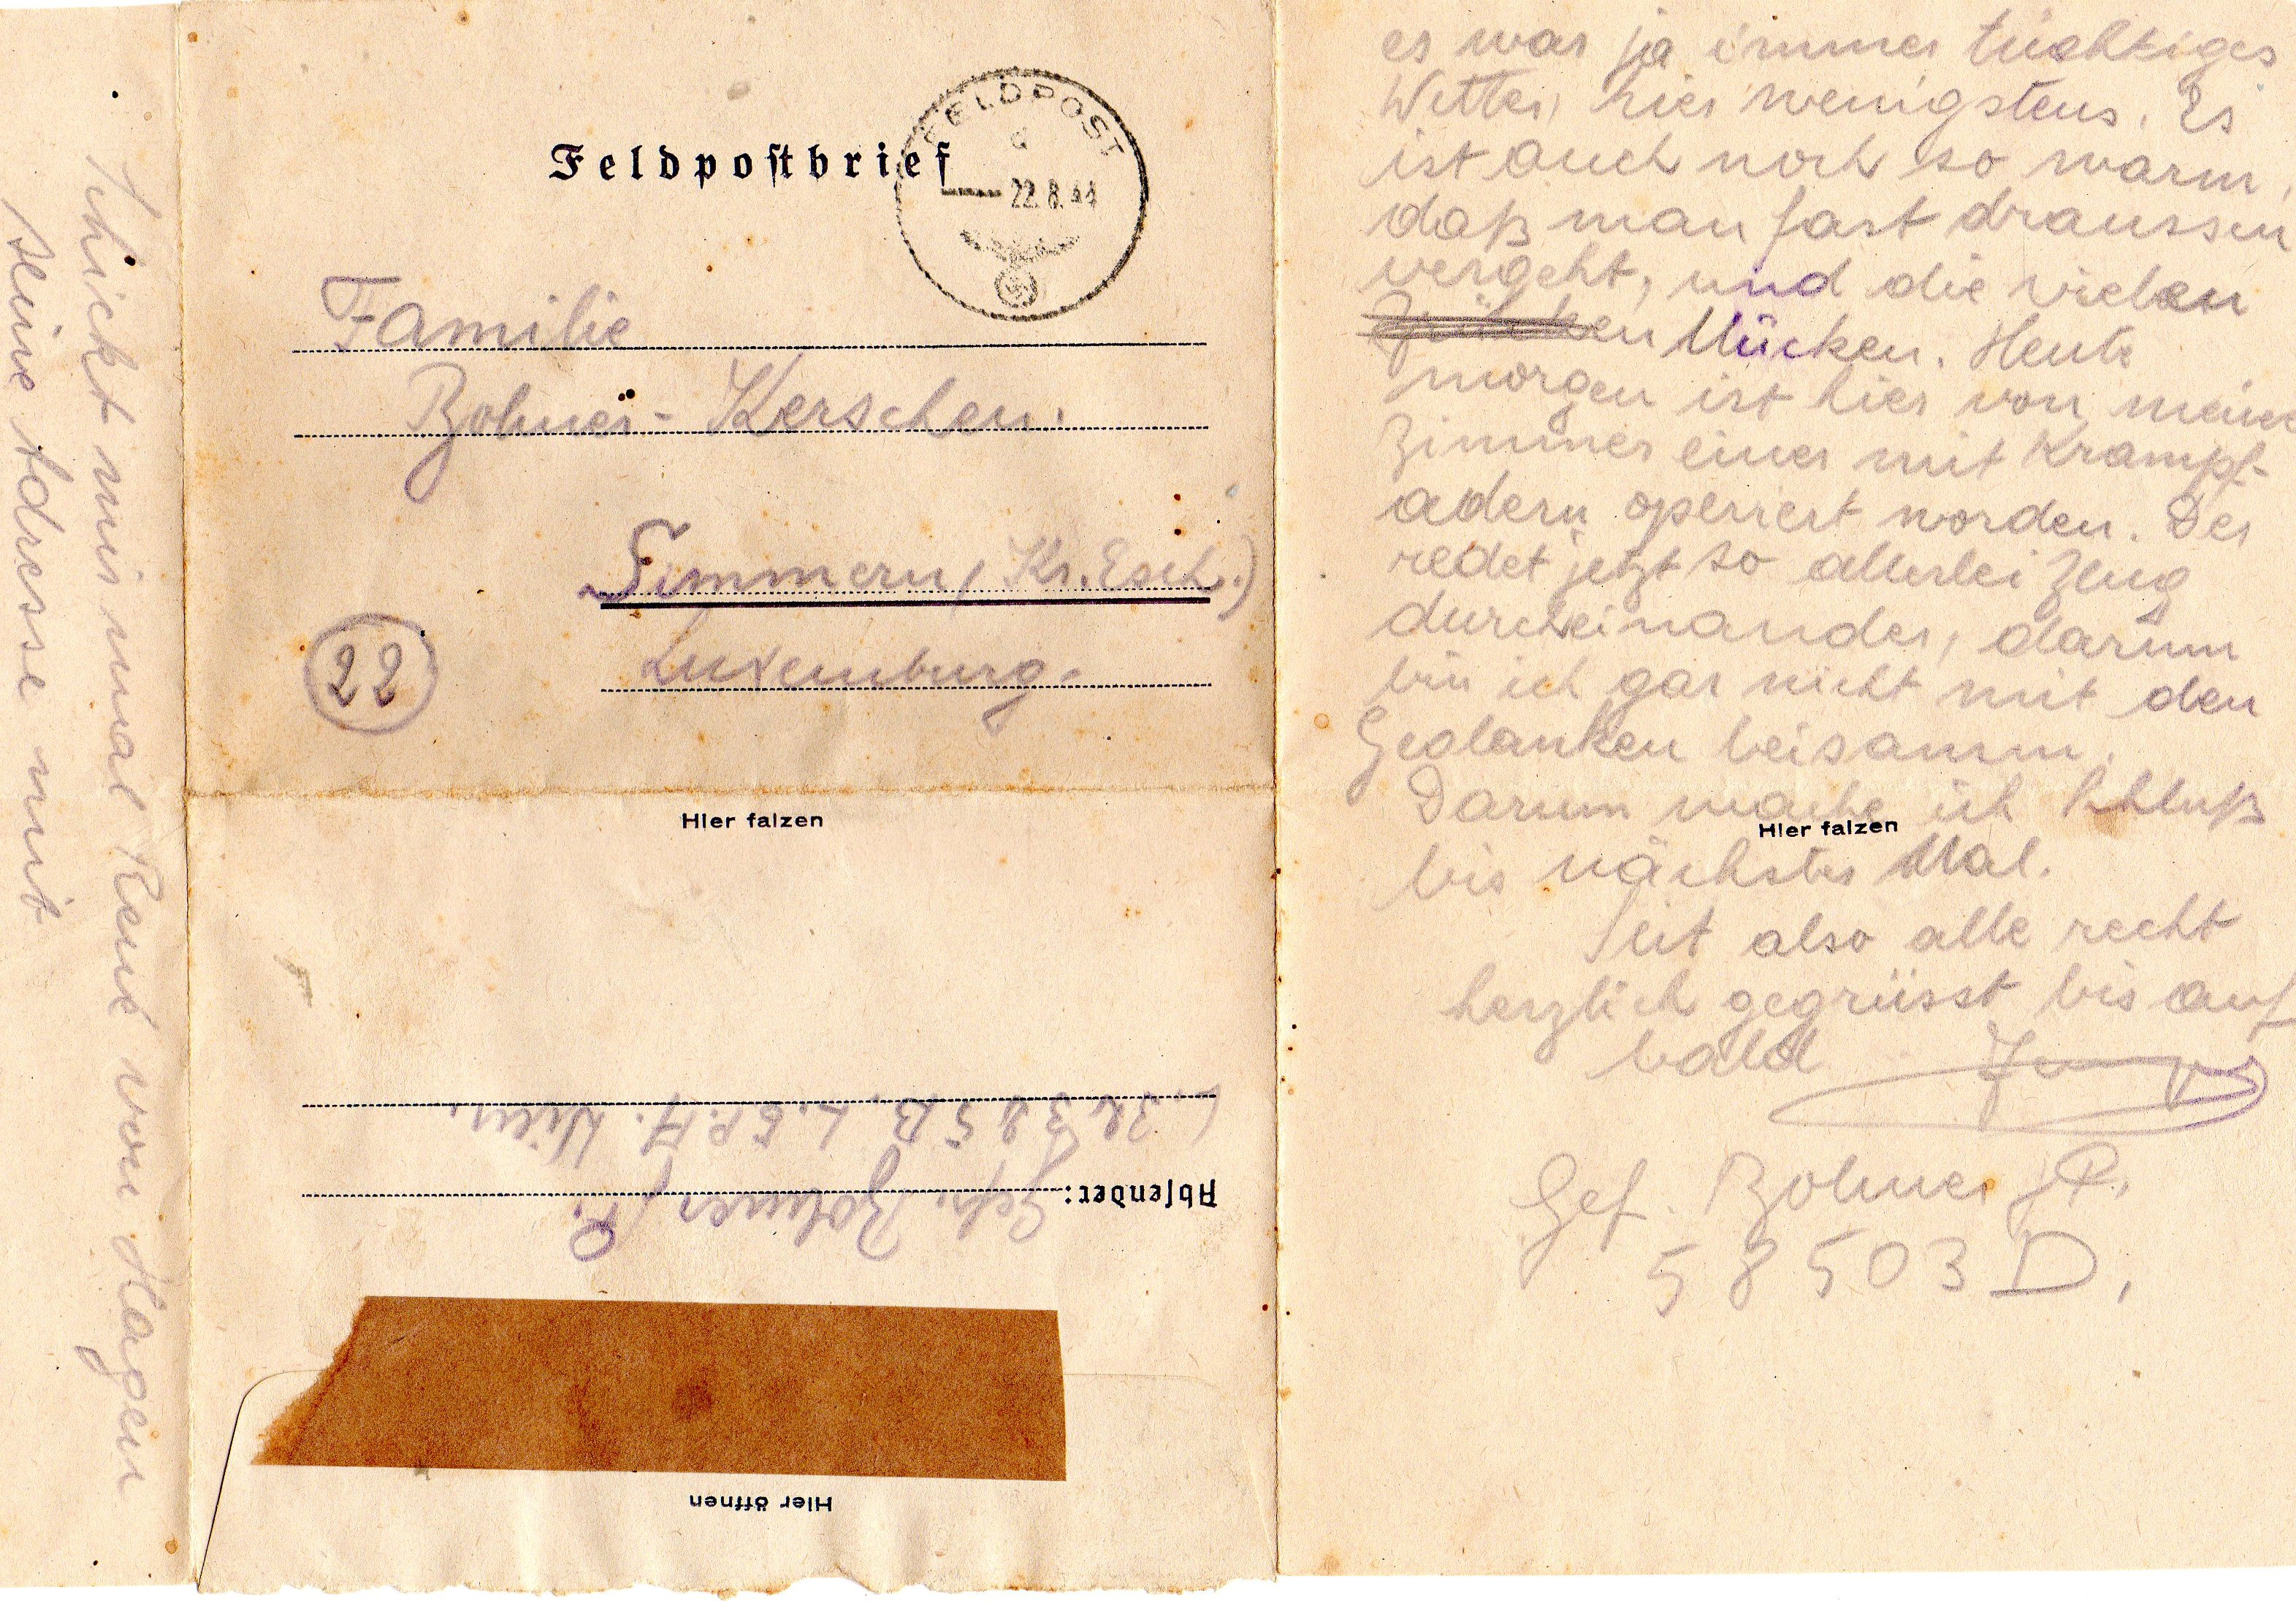 Schickt mir mal René von Hagen
seine Adresse mit
Feldpostbrief
FELDPOST
d
22.8.44
Familie
Bohner-Kerschen.
Simmern (Kr. Esch.)
22
Luxemburg.
Hier falzen
Absender: Gefr. Bohner P.
Hier öffnen
es war ja immer tüchtiges
Wetter, hier wenigstens. Es
ist auch noch so warm,
daß man fast draussen
vergeht, und die vielen
Mücken. Heute
morgen ist hier von meinem
Zimmer einer mit Krampf-
adern operiert worden. Der
redet jetzt so allerlei Zeug
durcheinander, darum
bin ich gar nicht mit den
Gedanken beisamm.
Darum mache ich Schluß
Hier falzen
bis nächstes Mal.
Seit also alle recht
herzlich gegrüsst bis auf
bald
Gef. Bohner P.
58503 D.